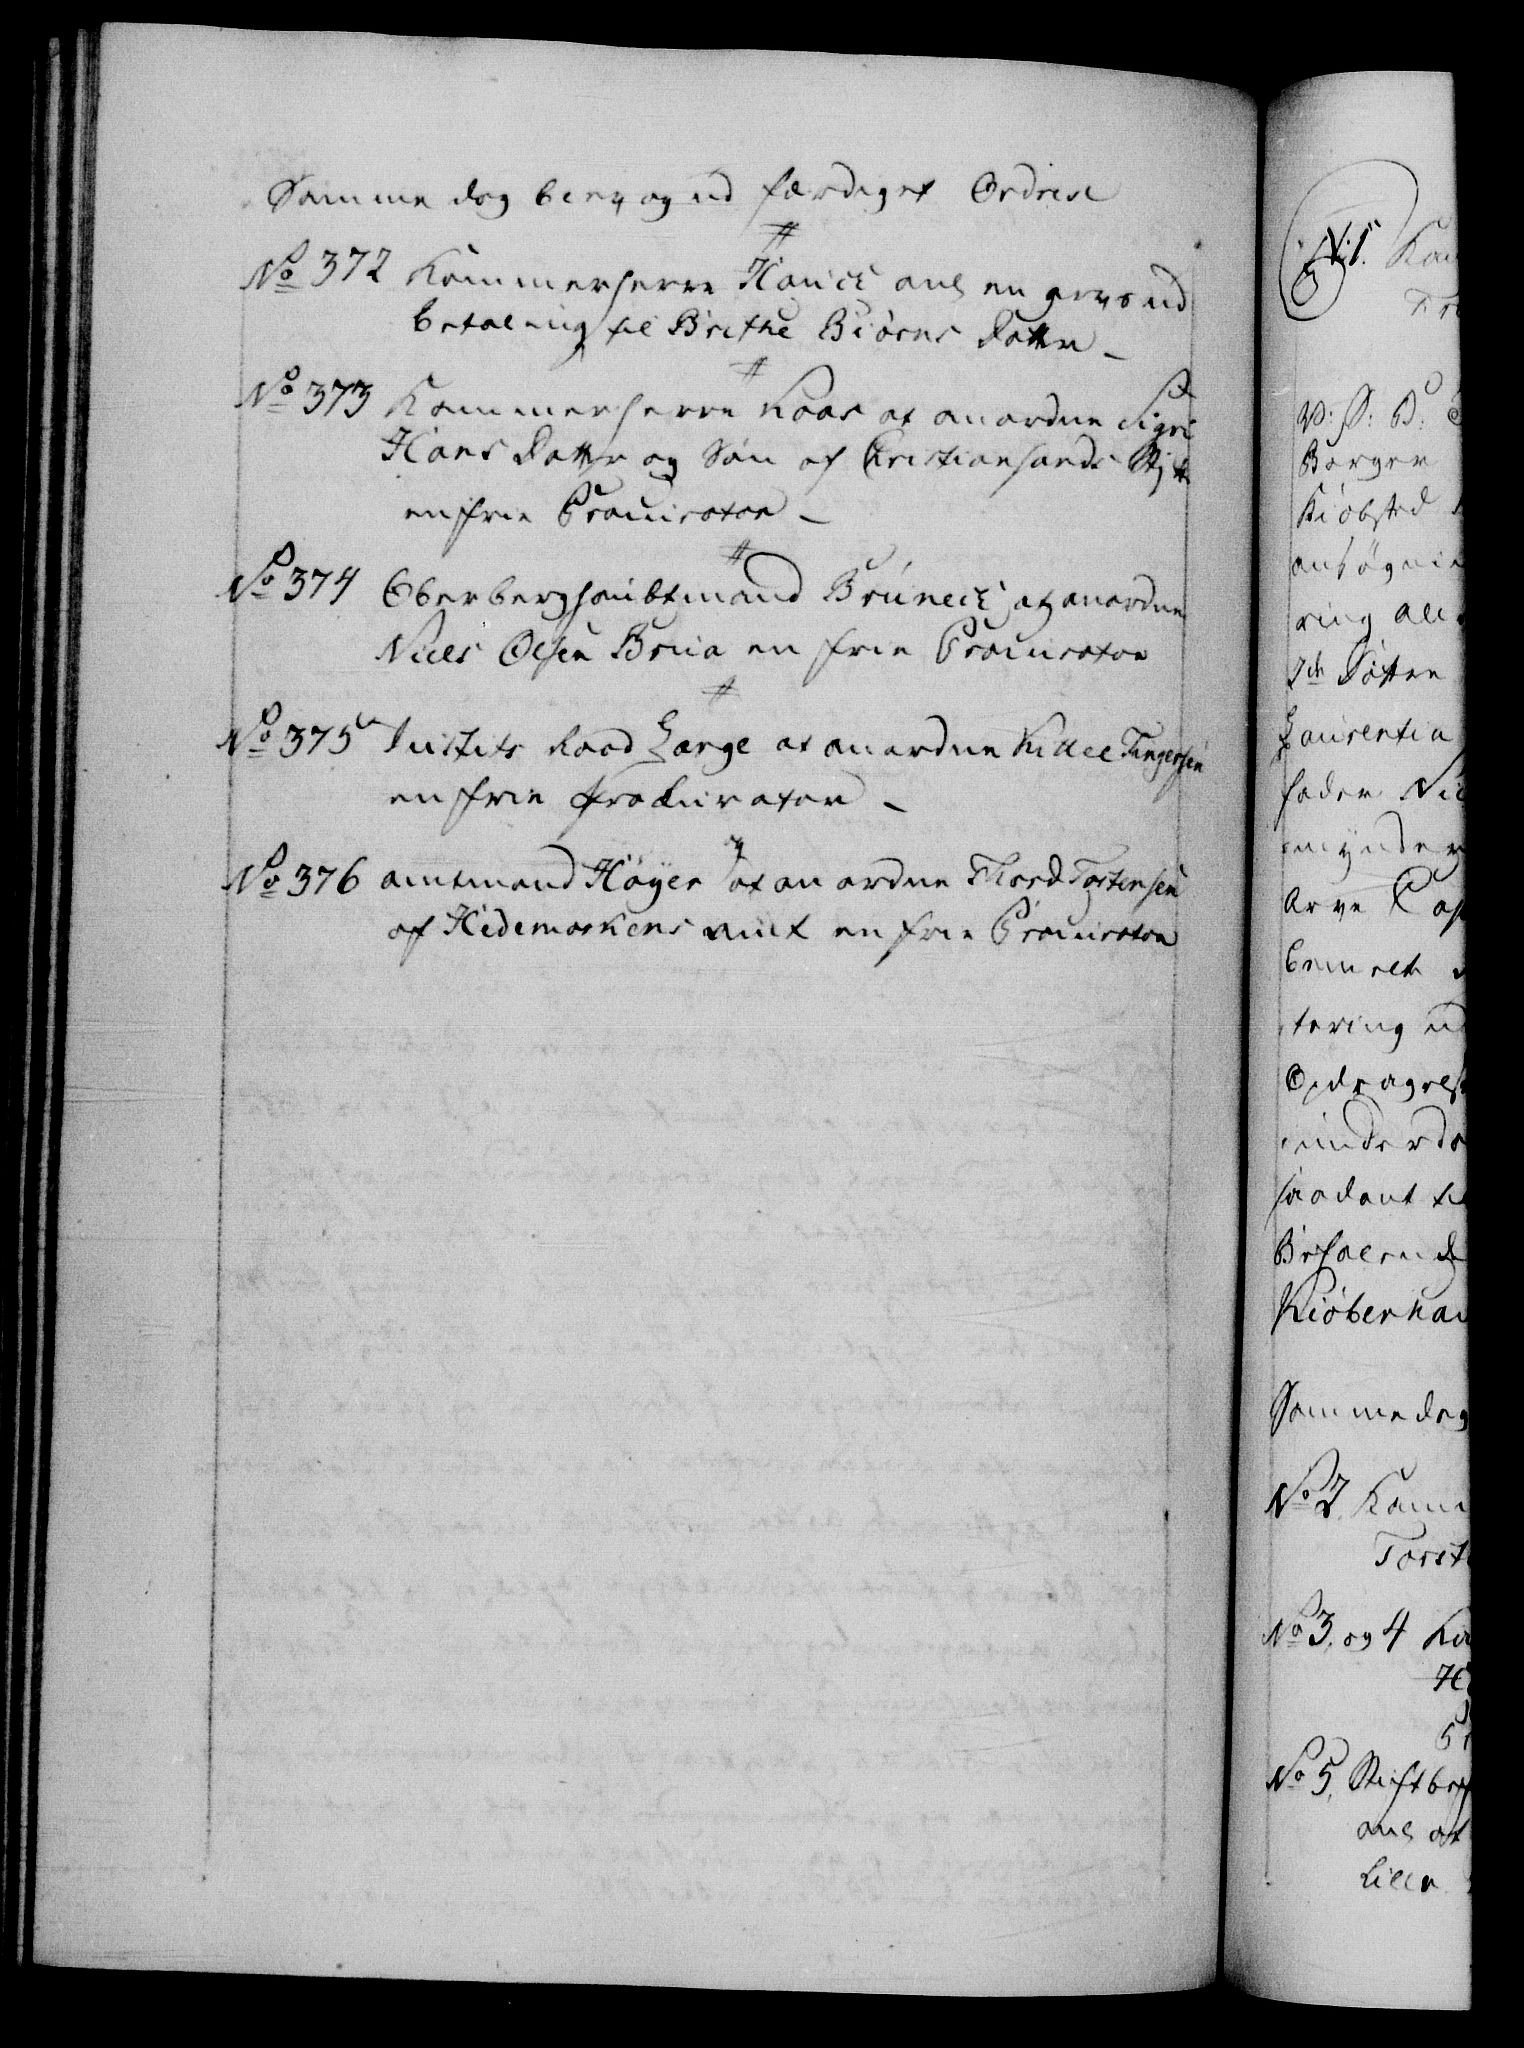 Samme dag blev og ud færdiget Ordres
No 372 Kammerherre Hauch anl en arvs ud
betaling til Brithe Biørns datter
No 373 Kammerherre Kaas at anordne Sigri
Hans datter og Søn af Christiansands Stift
en frie Procurator
No 374 Oberberghaubtmand Brúneck at anordne
Niels Olsen Brua en frie Procurator
No 375 Justits Raad Lange at anordne Kittel Tingersen
en frie Procurator
No 376 amtmand Høyer at anordne Thord Torstensen
af Hedemarkens amt en frie Procurator
No 1. Kam
V: S: B:
Borger
Kiøbsted
ansøgni
ring all
7de Døttre
Laurentia
fader Nie
mynder
Arve
bemelte
tering ud
saadant ti
Befalende
Kiøbenhav
Samme dag
No 2. Kam
Torst
No 3. og 4
No 5. Stiftbef
anl at
Lille